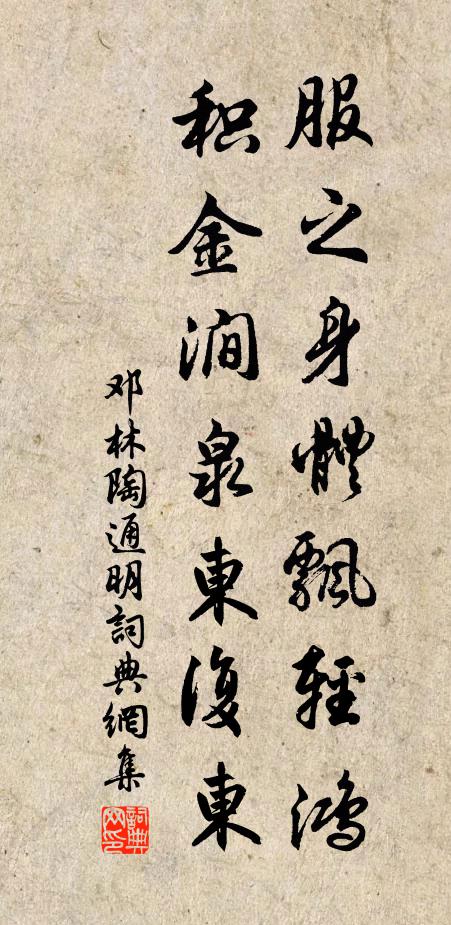 服之身體飄輕鴻
积金澗泉東復東
邓林陶通明詞典網集
詞典网印